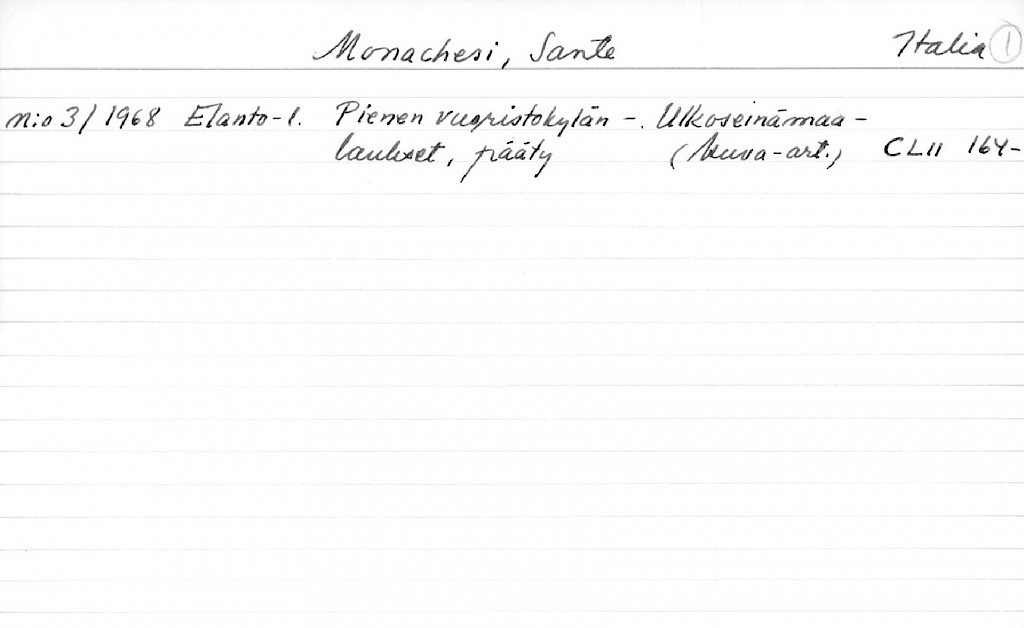 Monachesi, Sante Italia 1
n:o 3/1968 Elanto-l. Pienen vuoristokylän -. Ulkoseinämaa -
laukset, pääty (kuva-art.) CLII 164-